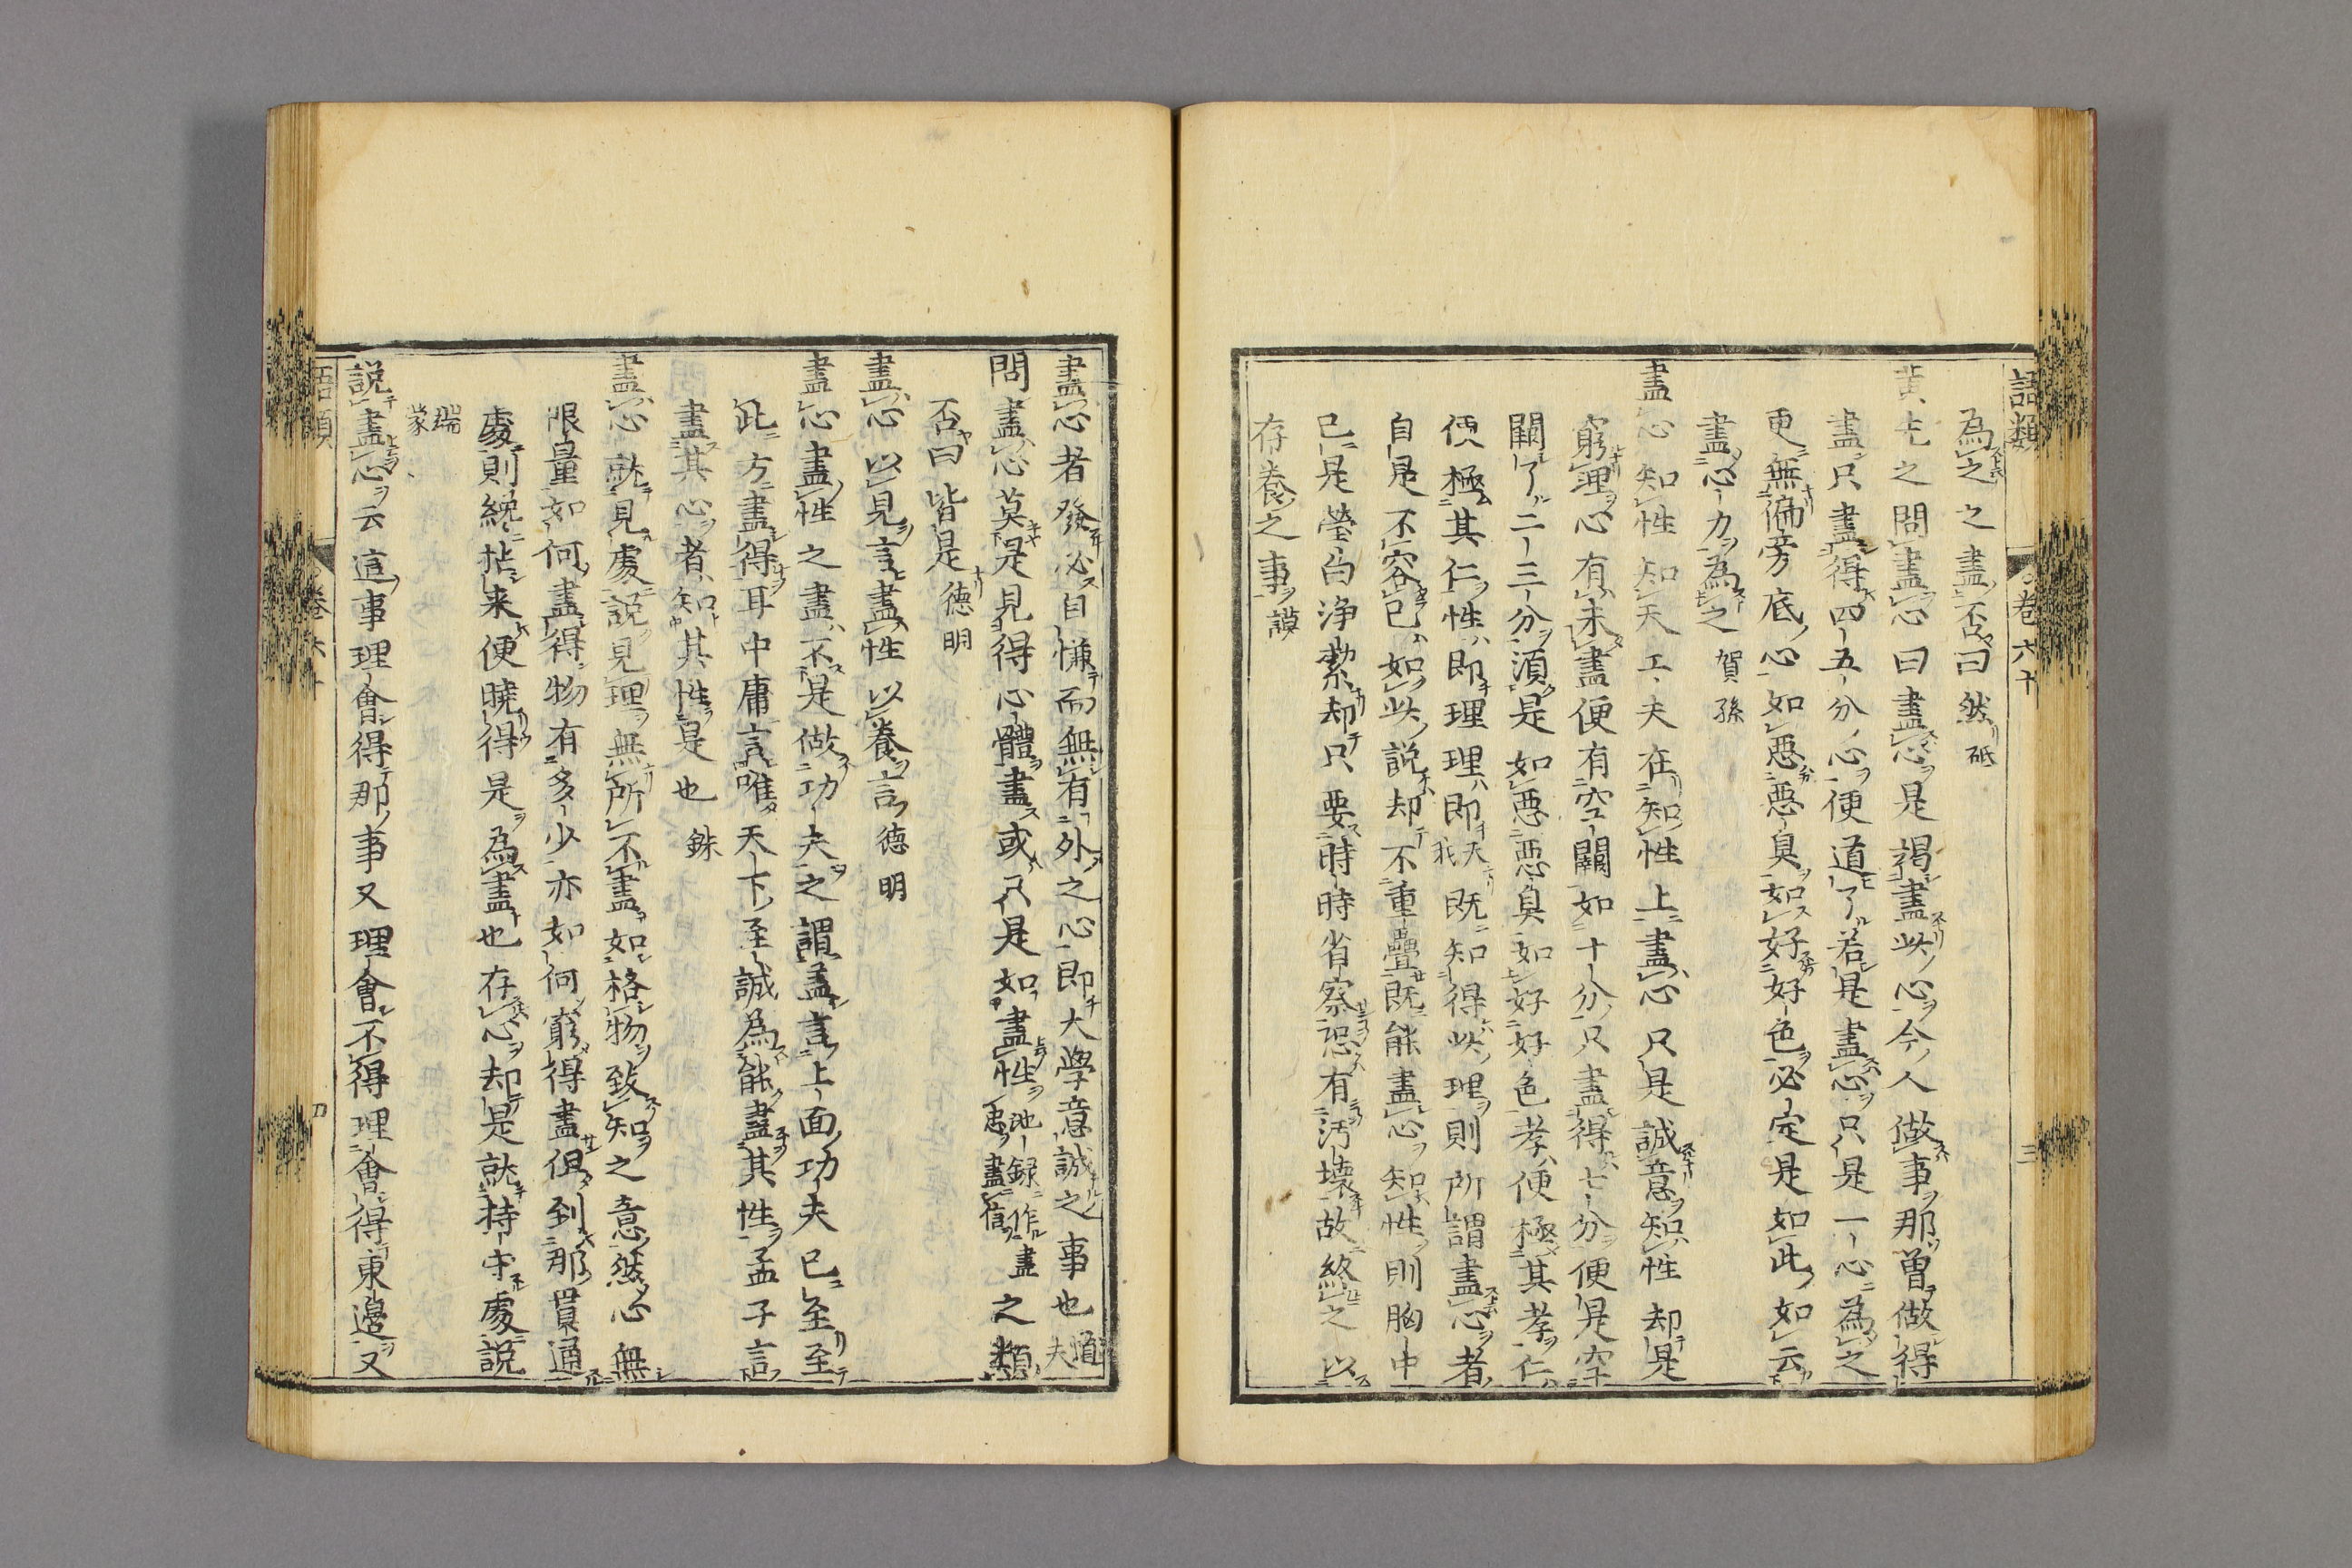 語類 卷六十 三
為之之盡否曰然 砥
黃先之問盡心曰盡心是竭盡此心今人做事那曾做得
盡只盡得四五分心便道了若是盡心只是一心為之
更無偏旁底心如惡惡臭如好好色必定是如此如云
盡心力為之 賀孫
盡心知性知天工夫在知性上盡心只是誠意知性却是
窮理心有未盡便有空闕如十分只盡得七分便是空
闕了二三分須是如惡惡臭如好好色孝便極其孝仁
便極其仁性即理理即天我既知得此理則所謂盡心者
自是不容已如此説却不重疊既能盡心知性則胸中
已是瑩白浄潔却只要時時省察恐有汚壞故終之以
存養之事 謨
盡心者發必自慊而無有外之心即大學意誠之事也 道夫
問盡心莫是見得心體盡或只是如盡性 池録作盡忠盡信 之類
否曰皆是 德明
盡心以見言盡性以養言 德明
盡心盡性之盡不是做功夫之謂蓋言上面功夫已至至
此方盡得耳中庸言唯天下至誠為能盡其性孟子言
盡其心者知其性是也 銖
盡心就見處説見理無所不盡如格物致知之意然心無
限量如何盡得物有多少亦如何窮得盡但到那貫通
處則纔拈来便曉得是為盡也存心却是就持守處説
端蒙
説盡心云這事理會得那事又理會不得理會得東邊又
語類 卷六十